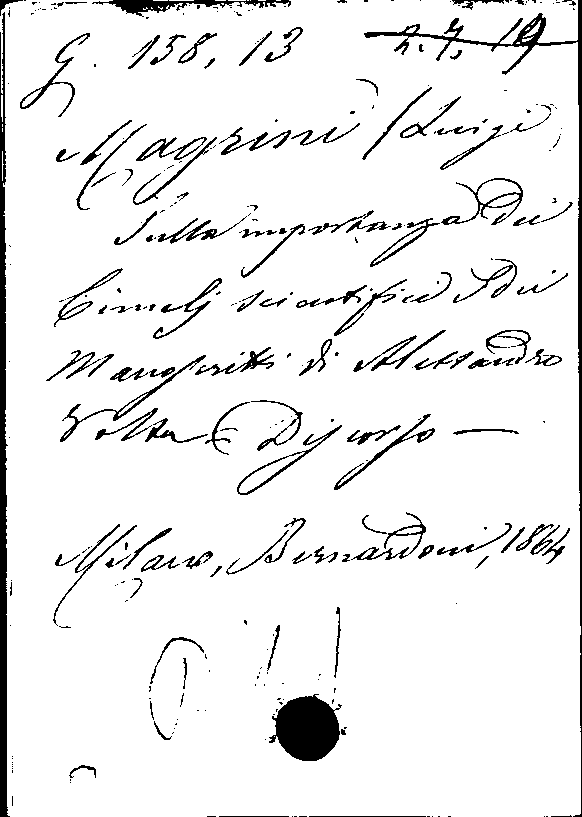 G. 158, 13 2.7.19
Magrini (Luigi)
Sulla importanza dei
Cimelj scientifici e dei
Manoscritti di Alessandro
Volta. Discorso —
Milano, Bernardoni, 1864